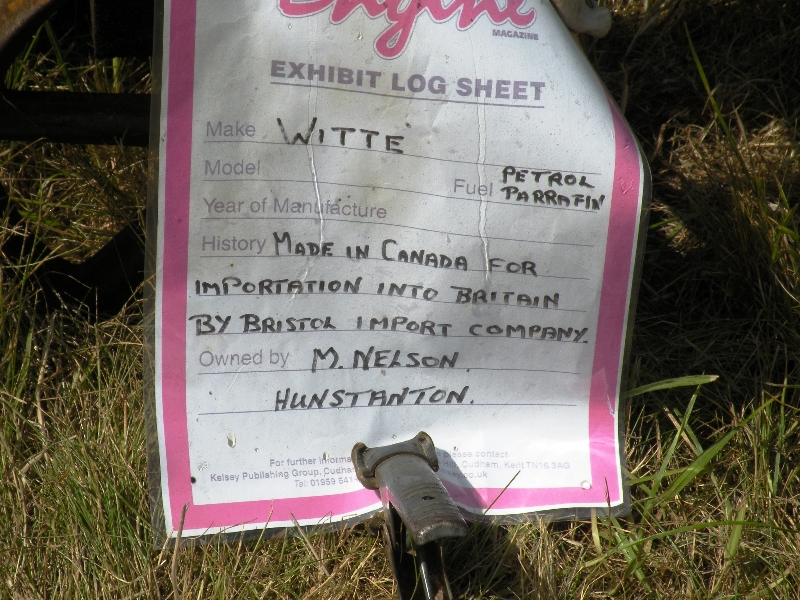 Engine
MAGAZINE
EXHIBIT LOG SHEET
Make WITTE
Model
Fuel PETROL
PARRAFIN
Year of Manufacture
History MADE IN CANADA FOR
IMPORTATION INTO BRITAIN
BY BRISTOL IMPORT COMPANY.
Owned by M. NELSON.
HUNSTANTON.
For further informa please contact
Kelsey Publishing Group, Cudh Cudham, Kent TN16 3AG
Tel: 01959 541 .co.uk